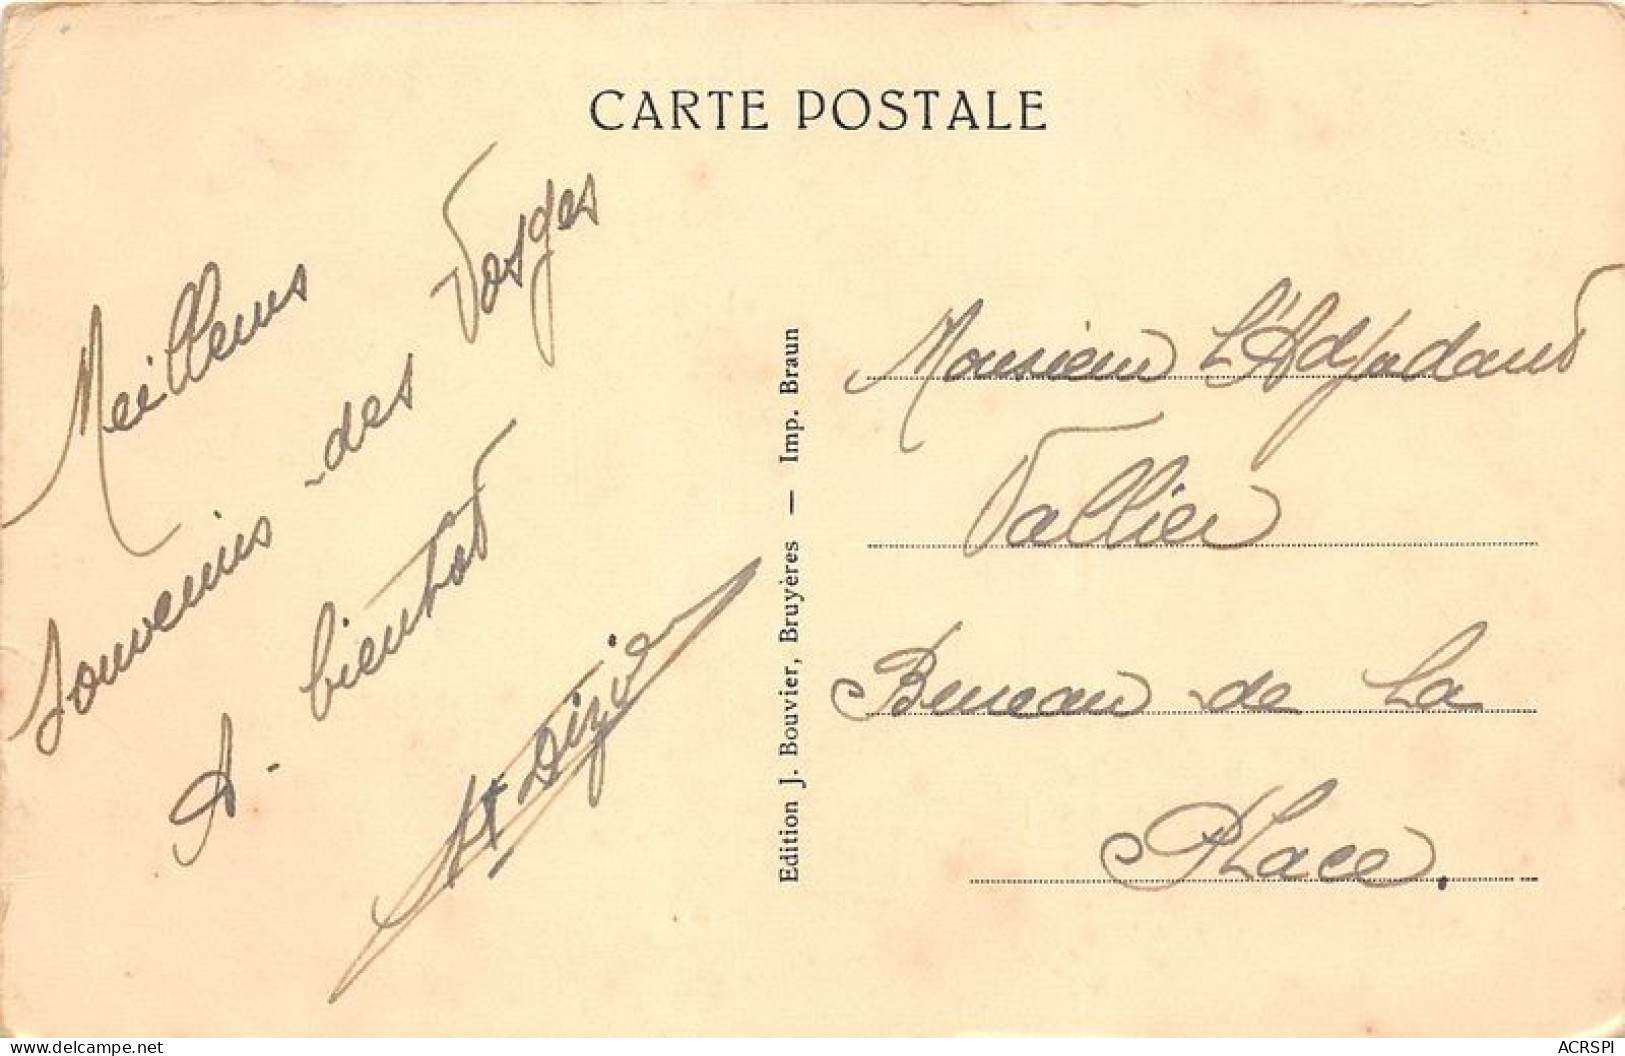 CARTE POSTALE
Meilleurs
souvenirs des Vosges
A bientot
St Dizier
Edition J. Bouvier, Bruyères — Imp. Braun
Monsieur L'Adjudant
Vallier
Bureau de La
Place.
delcampe.net
ACRSPI